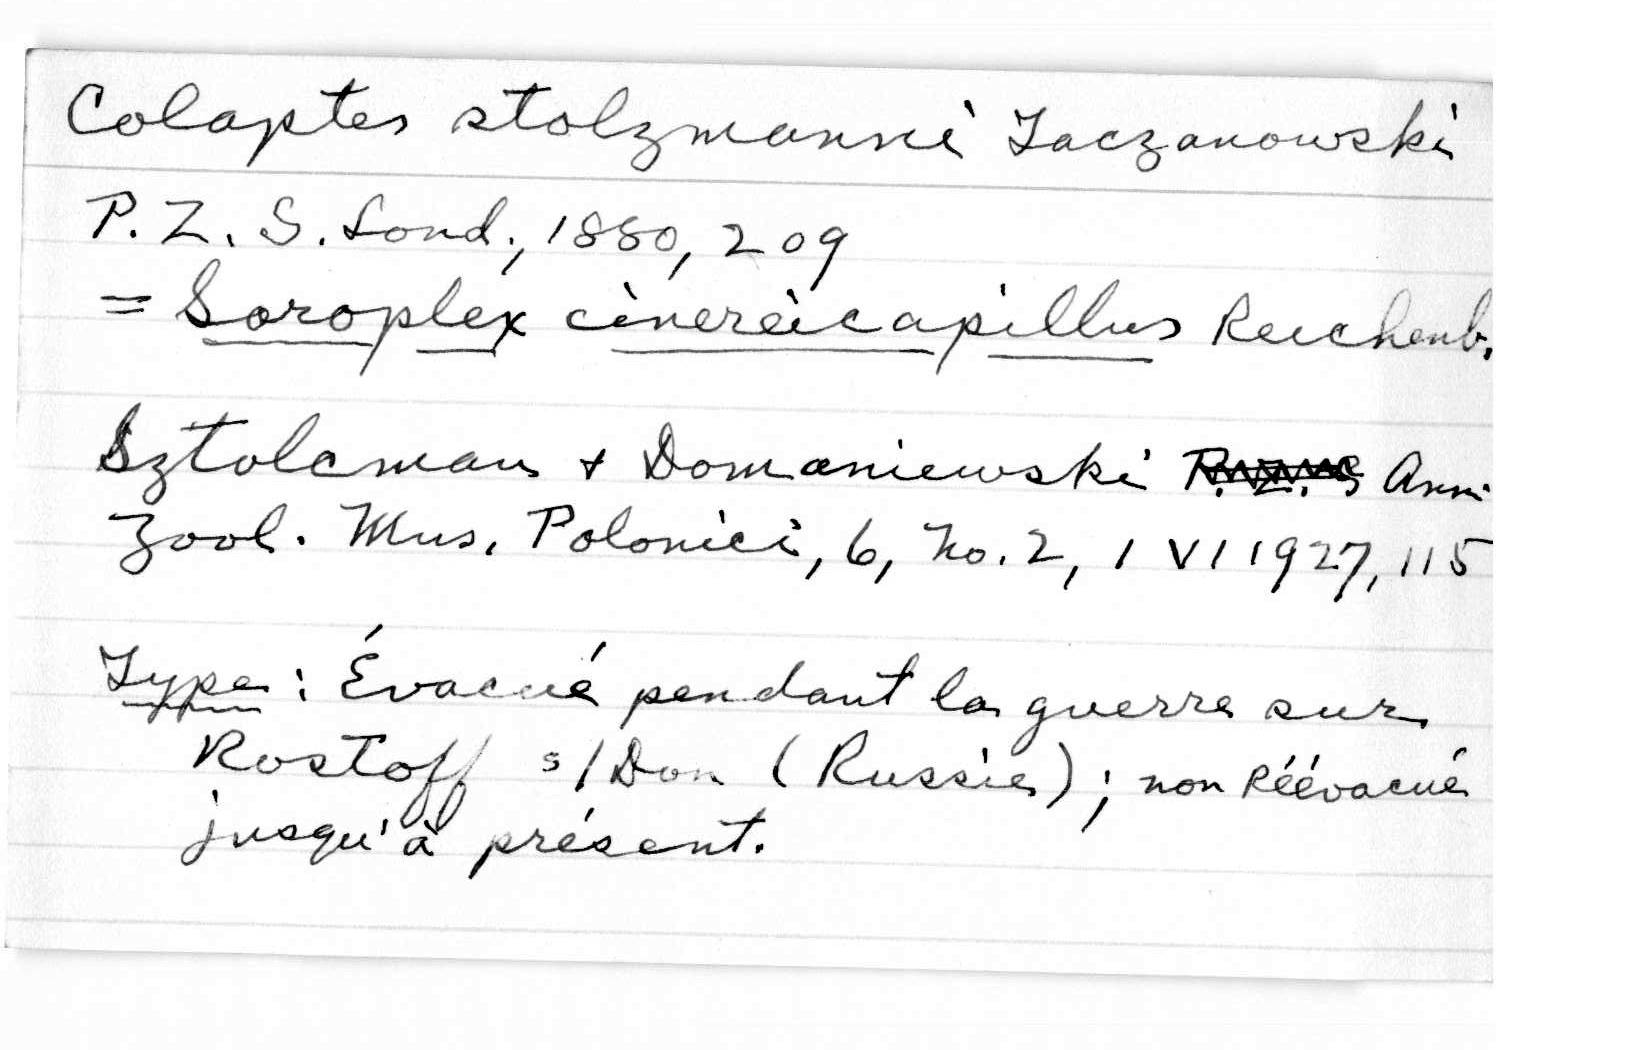 Colaptes stolzmanni Taczanowski
P. Z. S. Lond., 1880, 209
= Soroplex cinereicapillus Reichenb.
Sztolcman + Domaniewski Ann.
Zool. Mus. Polonici, 6, No. 2, 1 VI 1927, 115
Type : Évacué pendant la guerre sur
Rostoff s/Don (Russie) ; non Réévacué
jusqu'à présent.